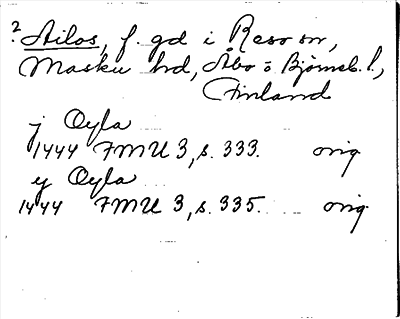 ? Ailos, f. gd i Reso sn,
Masku hd, Åbo o Björneb. l.,
Finland
j Oyla
1444 FMU 3, s. 333. orig.
y Oyla
1444 FMU 3, s. 335. orig.